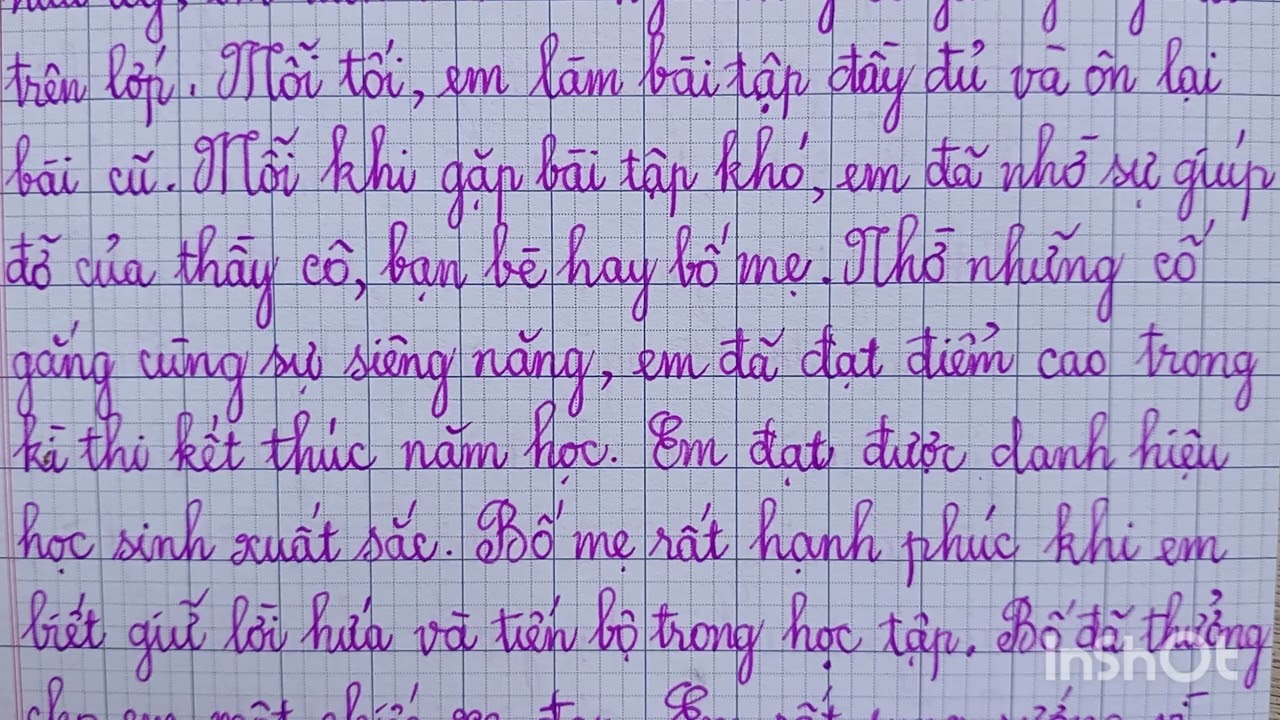 trên lớp. Mỗi tối, em làm bài tập đầy đủ và ôn lại
bài cũ. Mỗi khi gặp bài tập khó, em đã nhờ sự giúp
đỡ của thầy cô, bạn bè hay bố mẹ. Nhờ những cố
gắng cùng sự siêng năng, em đã đạt điểm cao trong
kì thi kết thúc năm học. Em đạt được danh hiệu
học sinh xuất sắc. Bố mẹ rất hạnh phúc khi em
biết giữ lời hứa và tiến bộ trong học tập. Bố đã thưởng
InShOt